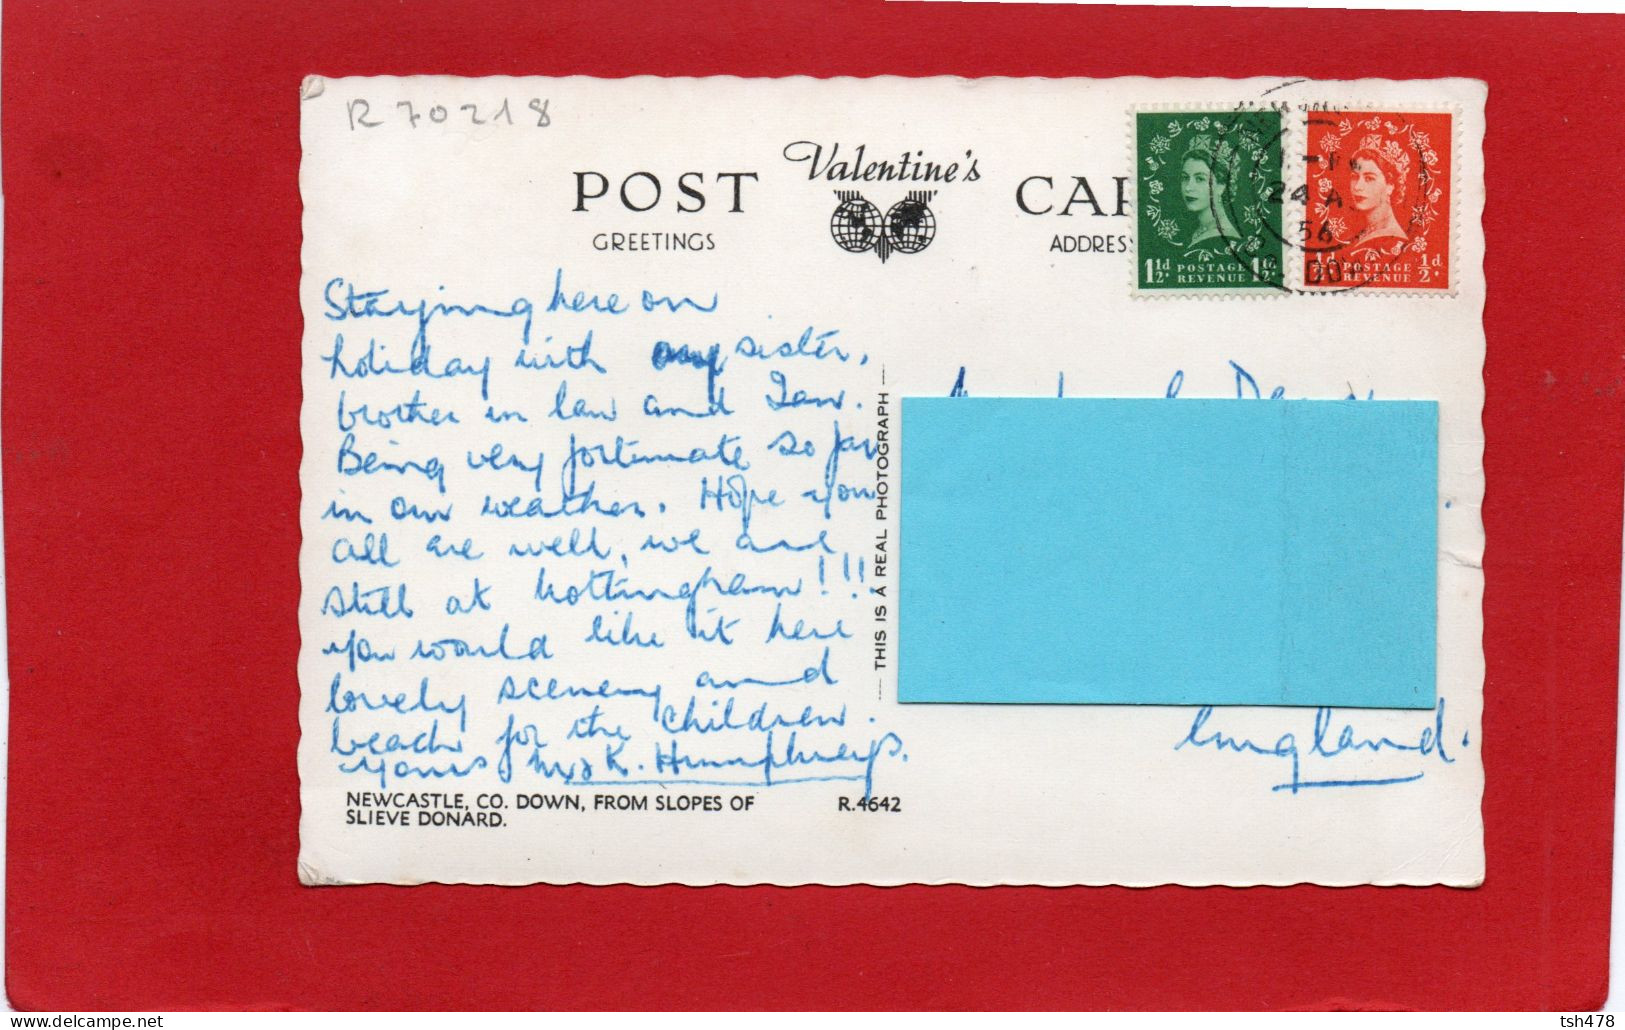 R 70218
Valentine's
POST CAR
GREETINGS
ADDRESS
1½d. POSTAGE REVENUE 1½d.
½d. POSTAGE REVENUE ½d.
24 A
56
CO. DOW
Staying here on
holiday with my sister,
brother in law and Ian.
Being very fortunate so far
in our weather. Hope you
all are well, we are
still at Nottingham!!!
You would like it here
lovely scenery and
beach for the children.
Yours K. Humphreys.
THIS IS A REAL PHOTOGRAPH
England.
NEWCASTLE, CO. DOWN, FROM SLOPES OF
SLIEVE DONARD.
R.4642
delcampe.net
tsh478